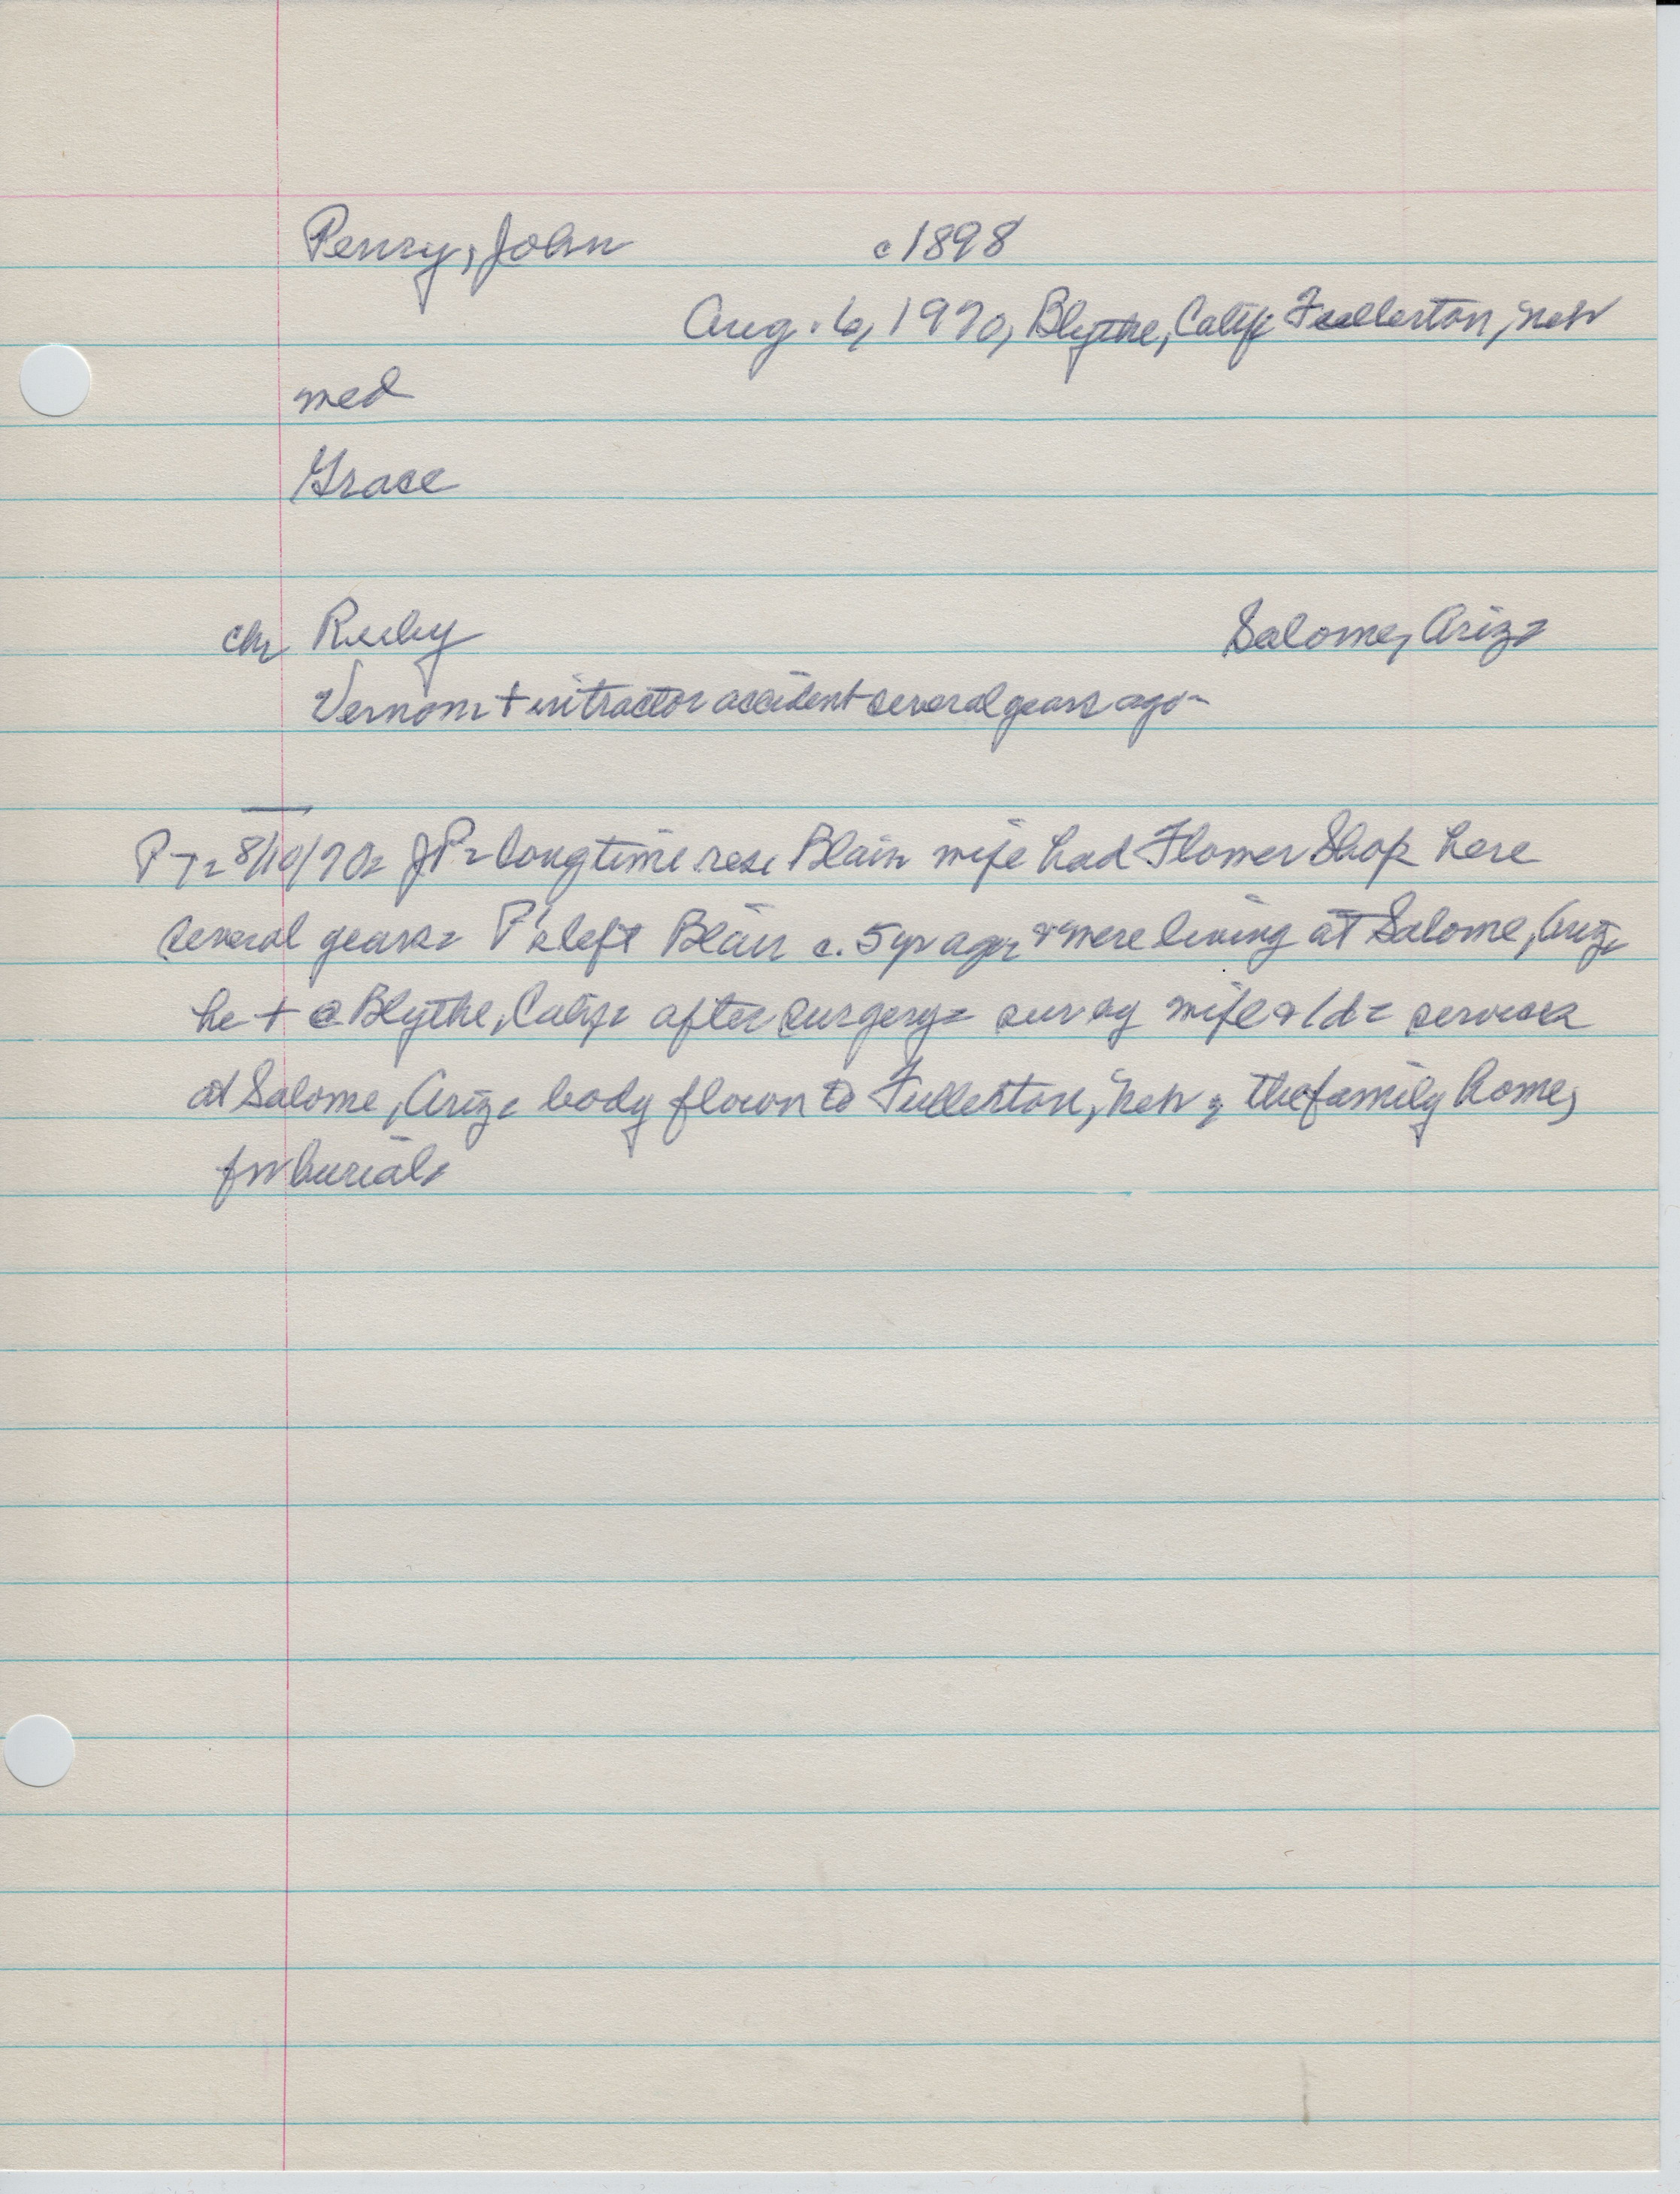 Penry, John c 1898
Aug. 6, 1970, Blythe, Calif. Fullerton, Neb
med
Grace
ch Ruby Salome, Ariz.
Vernon + in tractor accident several years ago-
P T= 8/10/70= JP= longtime res. Blair wife had Flower Shop here
several years= P's left Blair c. 5 yr ago & were living at Salome, Ariz.
he + @ Blythe, Calif= after surgery= surv by wife & 1d= services
at Salome, Ariz= body flown to Fullerton, Neb, the family home,
for burial=